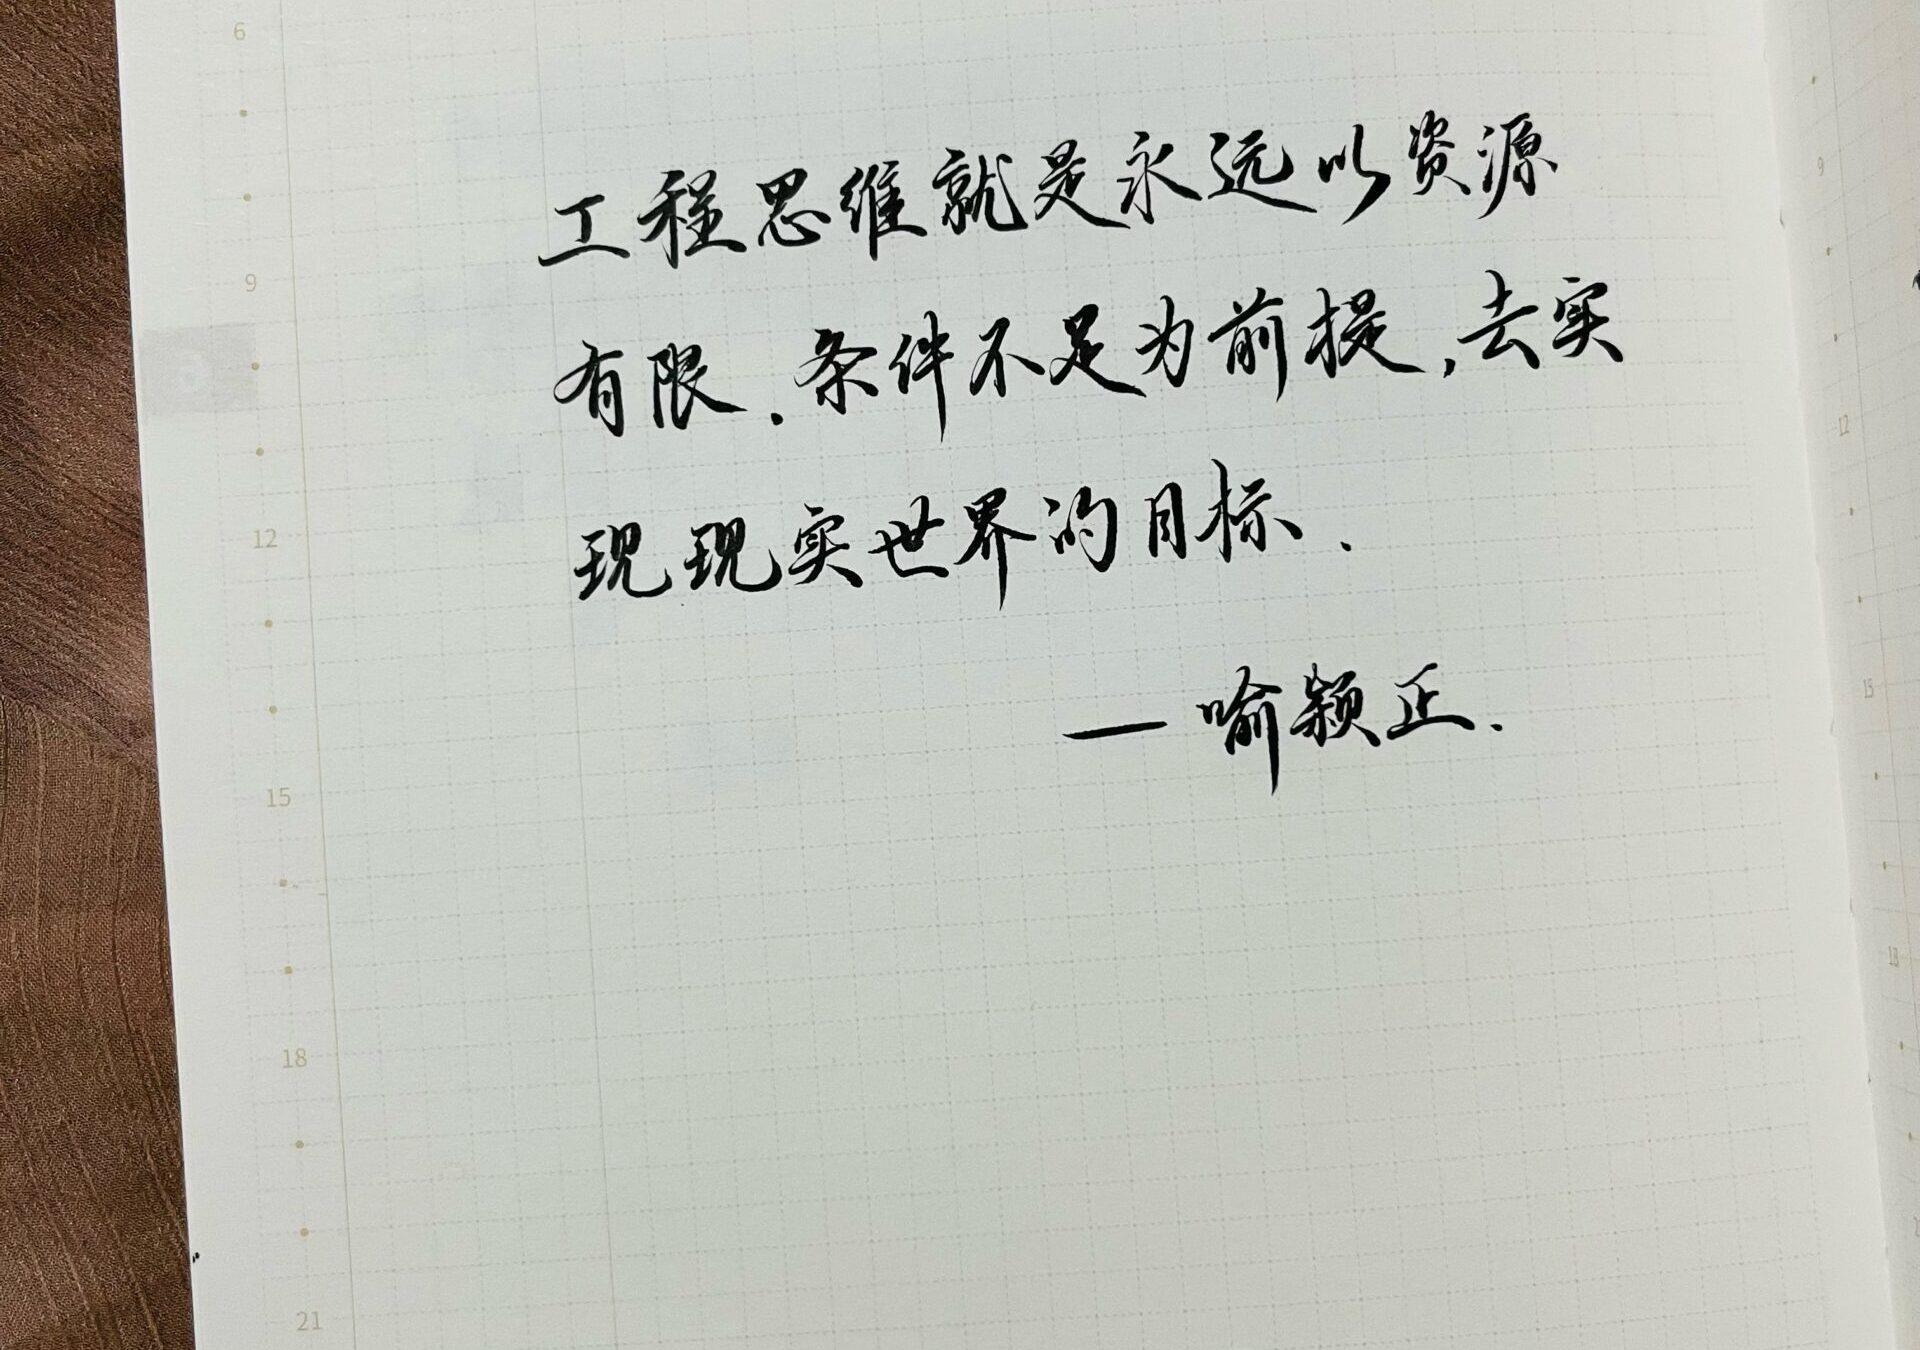 6
9
12
15
18
21
工程思维就是永远以资源
有限.条件不足为前提,去实
现现实世界的目标.
—喻颖正.
9
12
15
18